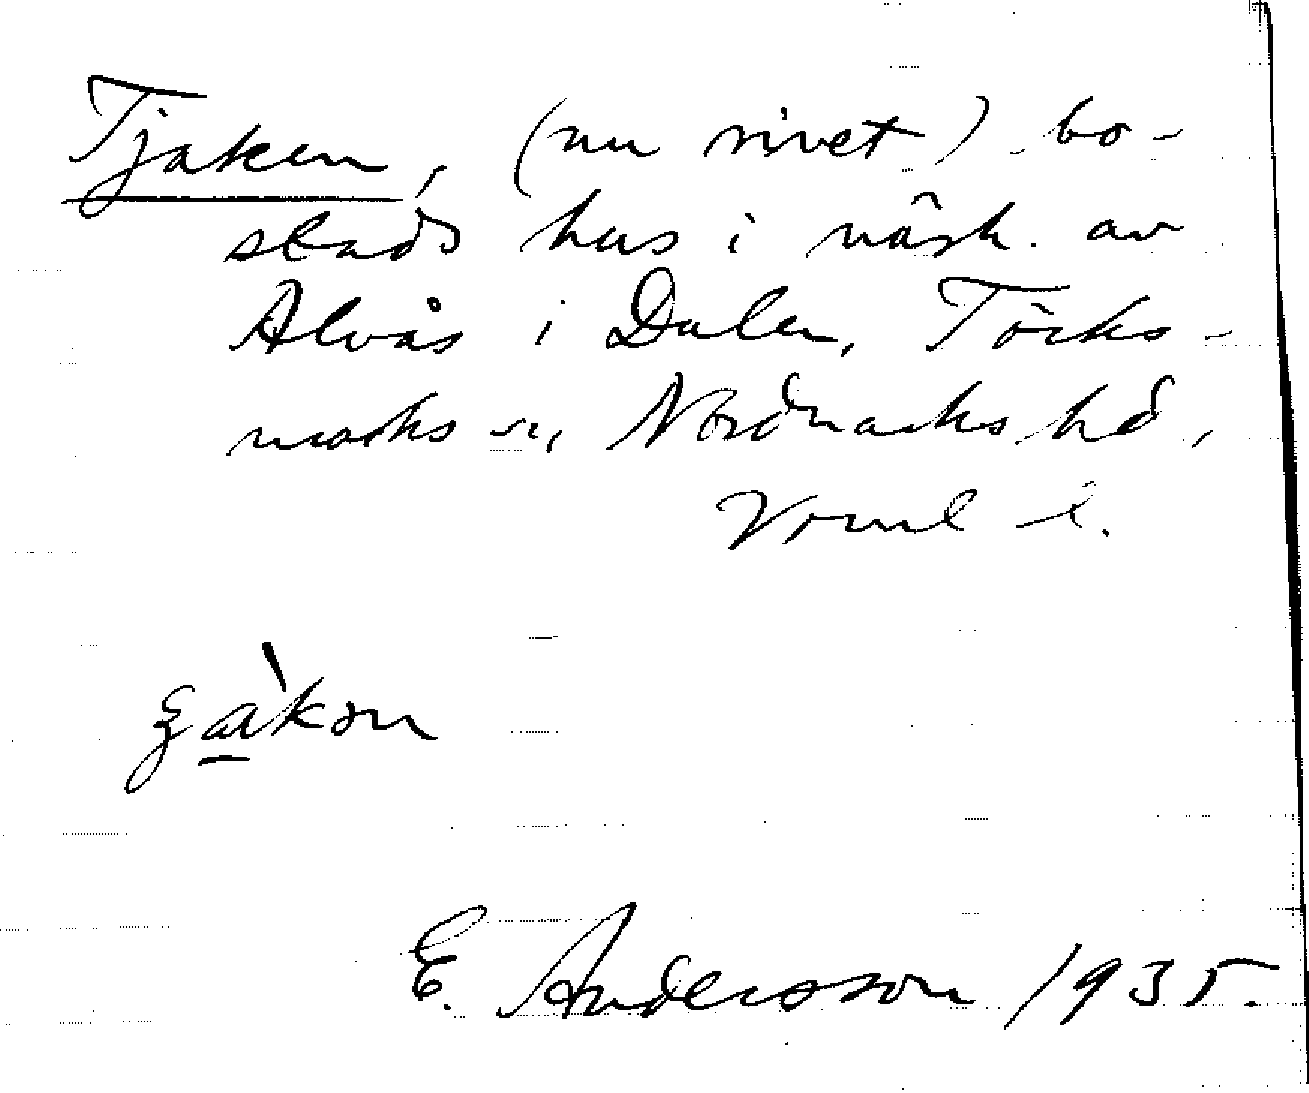 Tjaken, (nu rivet) bo-
stads hus i närh. av
Alvås i Dalen, Töcks-
marks sn, Nordmarks hd,
Vrml l.
ʒàkon
E. Andersson 1935.